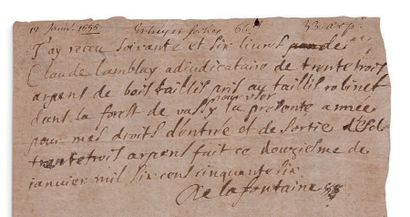 12 Janv. 1656 66 33 arp.
J'ay receu soixante et six livres de
Claude Lamblay adjudicataire de trente trois
arpens de bois taillis pris au taillis robinet
dans la forest de vassy pour la presente annee
pour mes droits d'entree et de sortie desd
trente trois arpens fait ce douziesme de
janvier mil six cens cinquante six
De la fontaine